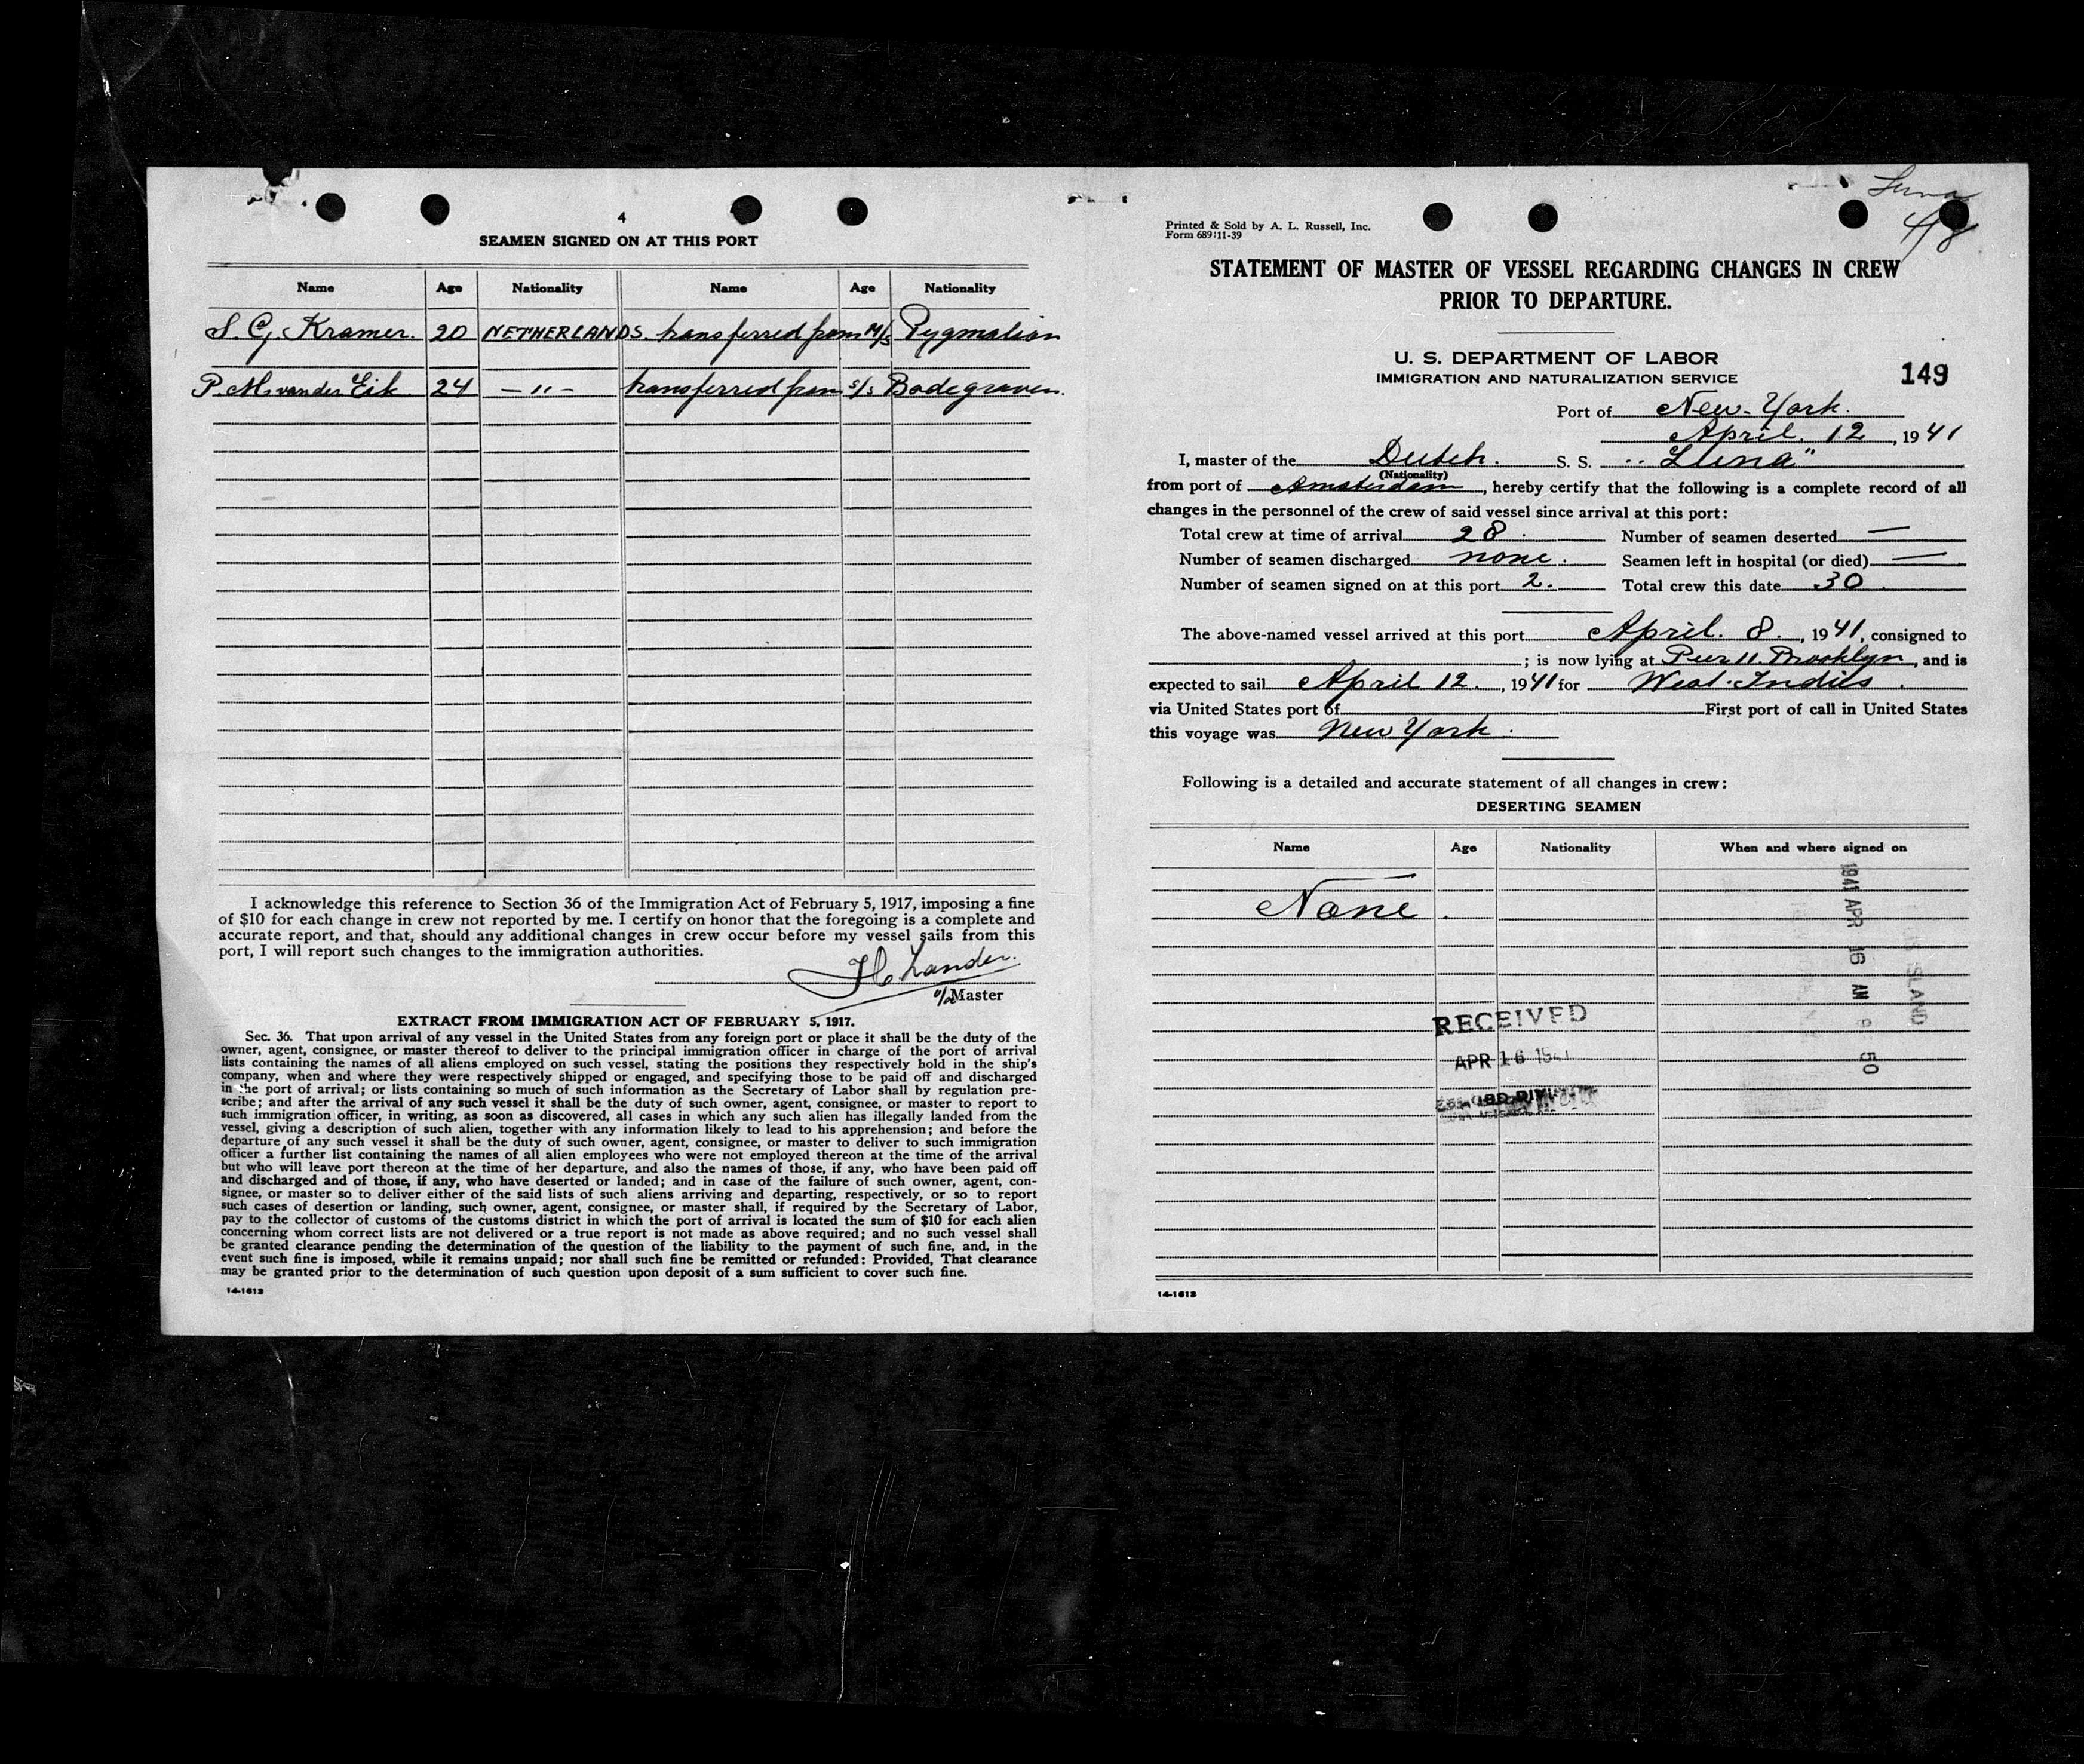 4
SEAMEN SIGNED ON AT THIS PORT
Name Age Nationality Name Age Nationality
S. G. Kramer. 20 NETHERLANDS. transferred from M/S Pygmalion
P. M. van der Eik 24 — " — transferred from S/S Bodegraven.
I acknowledge this reference to Section 36 of the Immigration Act of February 5, 1917, imposing a fine
of $10 for each change in crew not reported by me. I certify on honor that the foregoing is a complete and
accurate report, and that, should any additional changes in crew occur before my vessel sails from this
port, I will report such changes to the immigration authorities.
Master
EXTRACT FROM IMMIGRATION ACT OF FEBRUARY 5, 1917.
Sec. 36. That upon arrival of any vessel in the United States from any foreign port or place it shall be the duty of the
owner, agent, consignee, or master thereof to deliver to the principal immigration officer in charge of the port of arrival
lists containing the names of all aliens employed on such vessel, stating the positions they respectively hold in the ship's
company, when and where they were respectively shipped or engaged, and specifying those to be paid off and discharged
in the port of arrival; or lists containing so much of such information as the Secretary of Labor shall by regulation pre-
scribe; and after the arrival of any such vessel it shall be the duty of such owner, agent, consignee, or master to report to
such immigration officer, in writing, as soon as discovered, all cases in which any such alien has illegally landed from the
vessel, giving a description of such alien, together with any information likely to lead to his apprehension; and before the
departure of any such vessel it shall be the duty of such owner, agent, consignee, or master to deliver to such immigration
officer a further list containing the names of all alien employees who were not employed thereon at the time of the arrival
but who will leave port thereon at the time of her departure, and also the names of those, if any, who have been paid off
and discharged and of those, if any, who have deserted or landed; and in case of the failure of such owner, agent, con-
signee, or master so to deliver either of the said lists of such aliens arriving and departing, respectively, or so to report
such cases of desertion or landing, such owner, agent, consignee, or master shall, if required by the Secretary of Labor,
pay to the collector of customs of the customs district in which the port of arrival is located the sum of $10 for each alien
concerning whom correct lists are not delivered or a true report is not made as above required; and no such vessel shall
be granted clearance pending the determination of the question of the liability to the payment of such fine, and, in the
event such fine is imposed, while it remains unpaid; nor shall such fine be remitted or refunded: Provided, That clearance
may be granted prior to the determination of such question upon deposit of a sum sufficient to cover such fine.
14-1613
Luna
4/8
Printed & Sold by A. L. Russell, Inc.
Form 689 11-39
STATEMENT OF MASTER OF VESSEL REGARDING CHANGES IN CREW
PRIOR TO DEPARTURE.
U. S. DEPARTMENT OF LABOR
IMMIGRATION AND NATURALIZATION SERVICE
149
Port of New-York.
April. 12, 1941
I, master of the Dutch. S. S. "Luna"
(Nationality)
from port of Amsterdam, hereby certify that the following is a complete record of all
changes in the personnel of the crew of said vessel since arrival at this port:
Total crew at time of arrival 28. Number of seamen deserted —
Number of seamen discharged none. Seamen left in hospital (or died) —
Number of seamen signed on at this port 2. Total crew this date 30.
The above-named vessel arrived at this port April. 8., 1941, consigned to
; is now lying at Pier 11. Brooklyn, and is
expected to sail April 12., 1941 for West-Indies.
via United States port of First port of call in United States
this voyage was New York.
Following is a detailed and accurate statement of all changes in crew:
DESERTING SEAMEN
Name Age Nationality When and where signed on
None.
1941 APR 16 AM 9 50
ISLAND
RECEIVED
APR 16 1941
14-1613